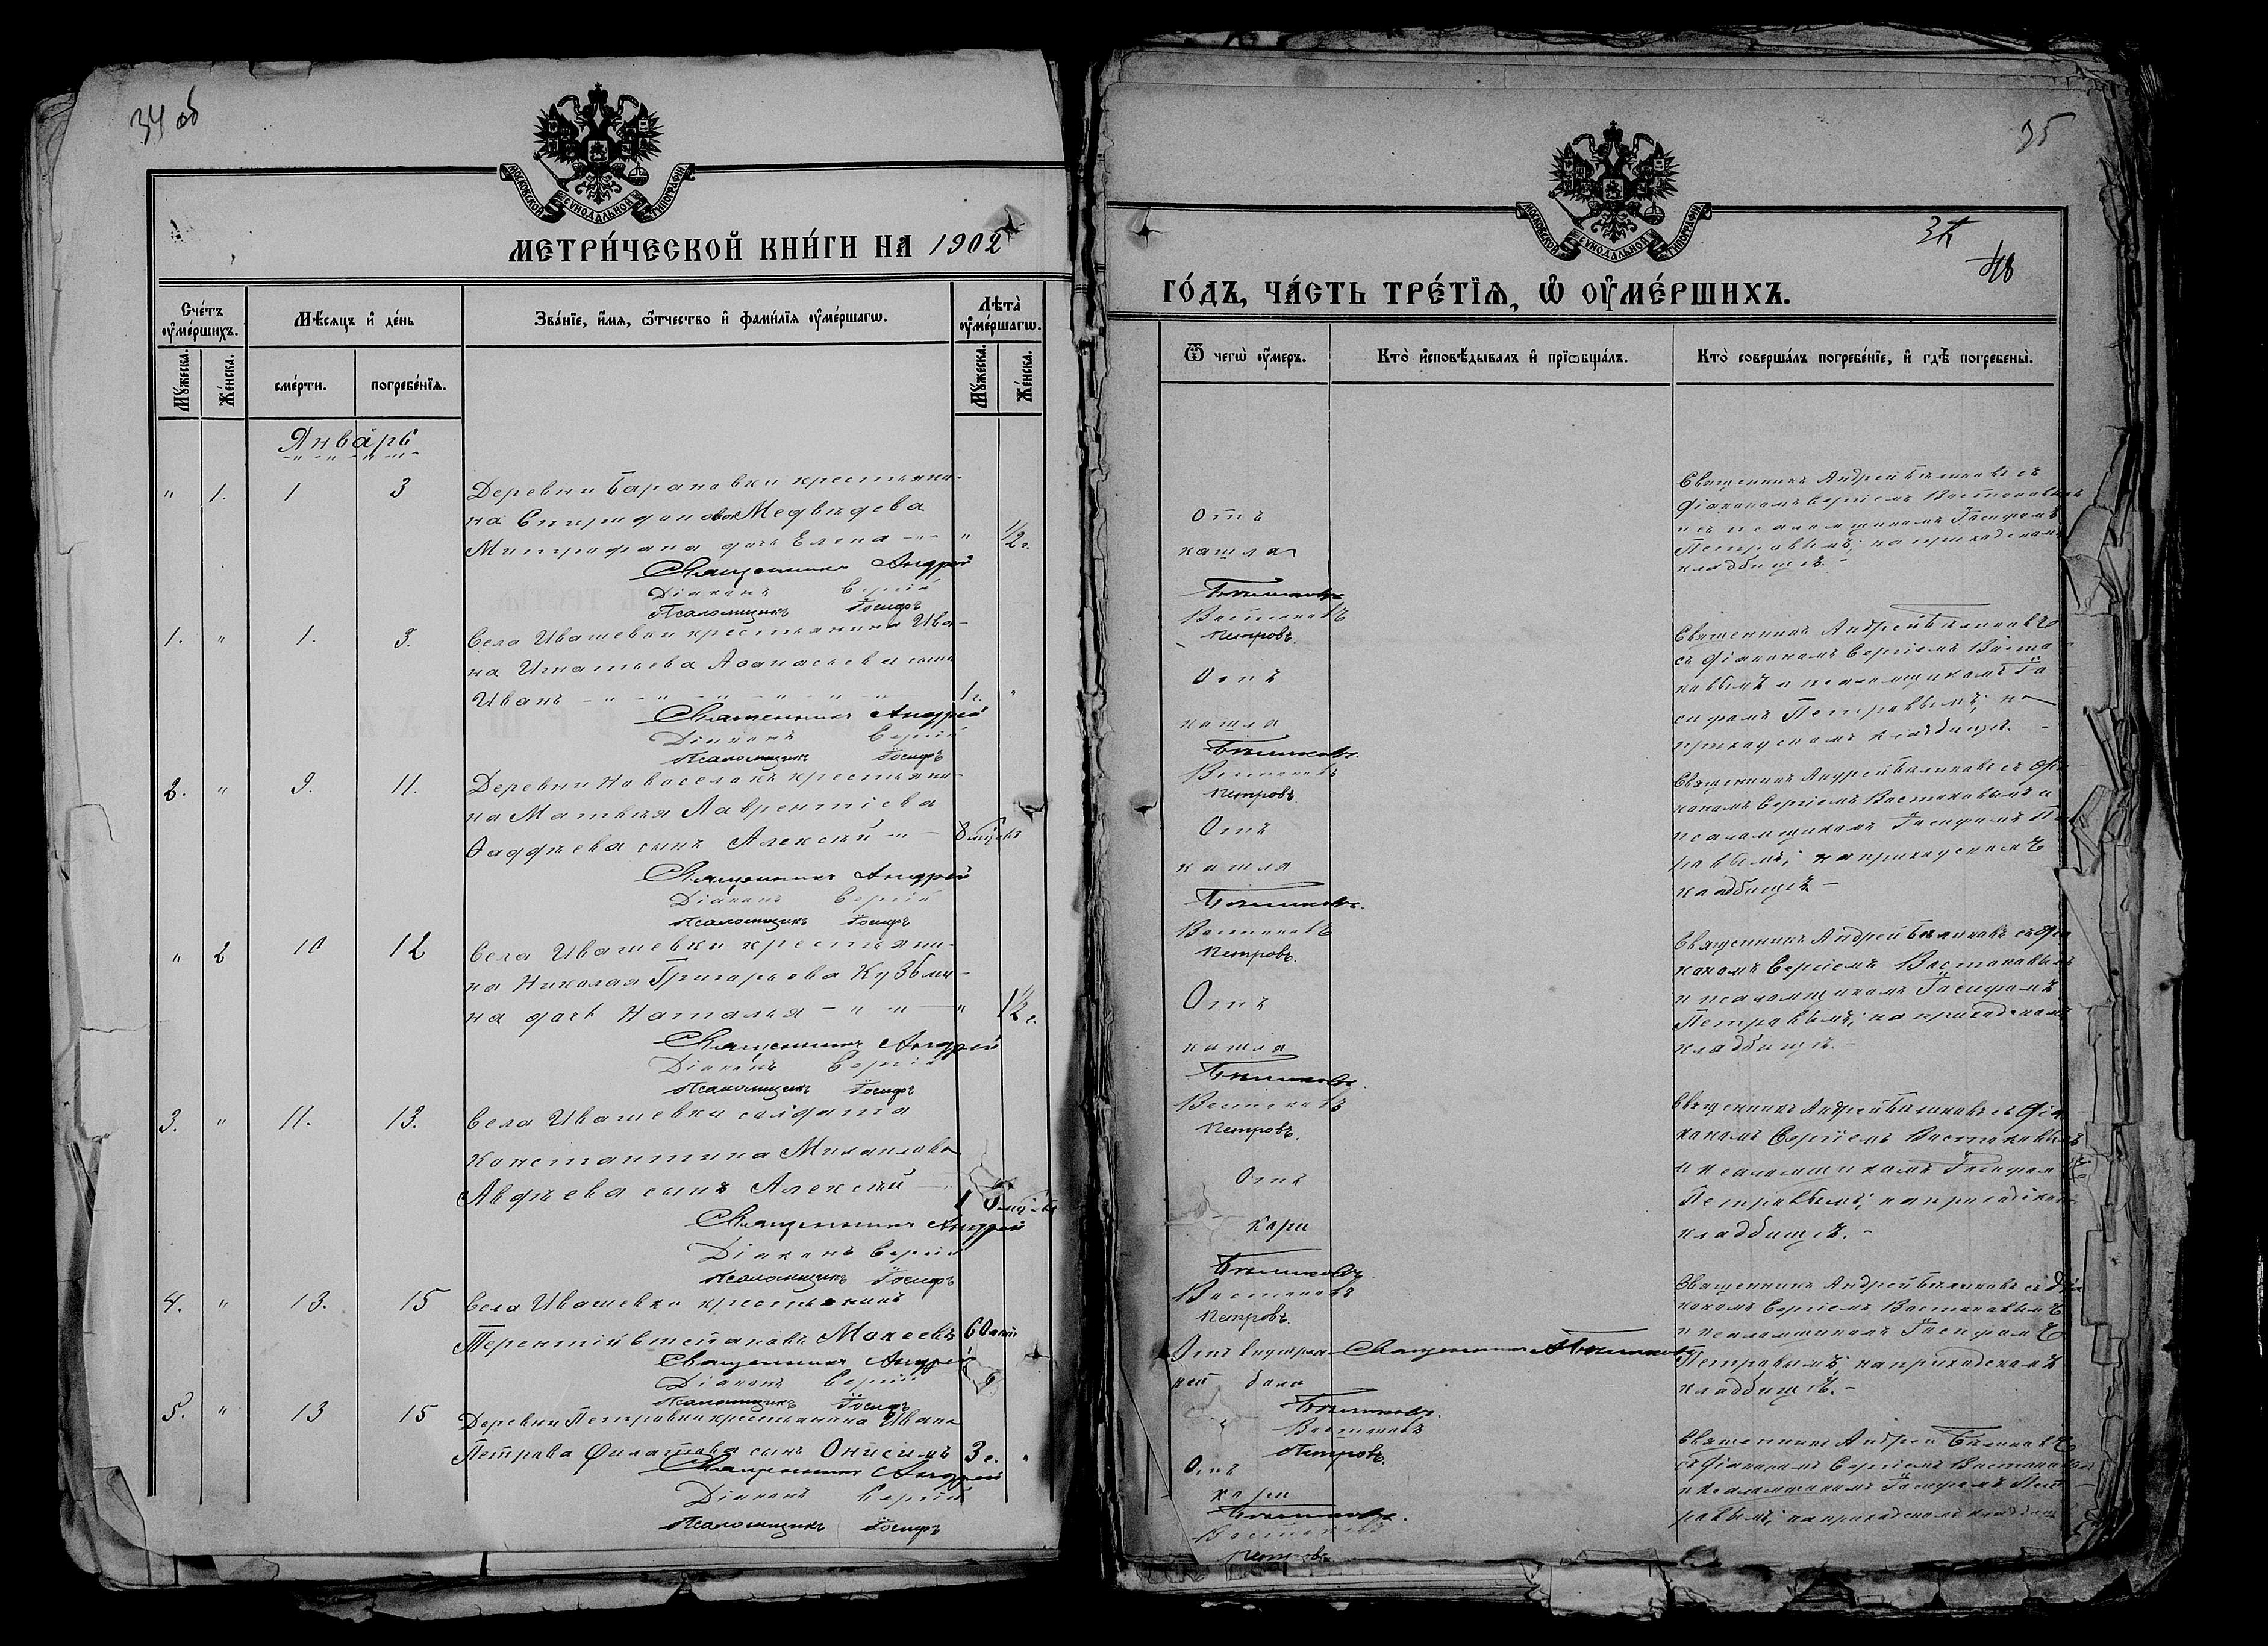 34 об
МОСКОВСКОЙ СѴНОДАЛЬНОЙ ТИПОГРАФІИ
МЕТРИ́ЧЕСКОЙ КНИ́ГИ НА 1902
Сче́тъ ᲂу҆ме́ршихъ.
Мѣ́сяцъ и҆ де́нь
Зва́нїе, и҆́мя, ѻ҆́тчество и҆ фами́лїя ᲂу҆ме́ршагѡ.
Лѣта̀ ᲂу҆ме́ршагѡ.
Мꙋ́жеска.
Же́нска.
сме́рти.
погребе́нїя.
Мꙋ́жеска.
Же́нска.
Январь
" 1. 1 3 Деревни Барановки крестьяни-
на Спиридонова Медвѣдева
Митрофана дочь Елена " 1/2 г.
Священникъ Андрей
Діаконъ Сергій
Псаломщикъ Іосифъ
1. " 1. 3. Села Ивашевки крестьянина Ива-
на Игнатьева Аѳанасьева сынъ
Иванъ 1 г. "
Священникъ Андрей
Діаконъ Сергій
Псаломщикъ Іосифъ
2. " 9. 11. Деревни Новоселокъ крестьяни-
на Матвѣя Лаврентіева
Ѳаддѣева сынъ Алексѣй 8 мѣсяц
Священникъ Андрей
Діаконъ Сергій
Псаломщикъ Іосифъ
" 2 10 12 Села Ивашевки крестьяни-
на Николая Григорьева Кузьми-
на дочь Наталья " 1/2 г.
Священникъ Андрей
Діаконъ Сергій
Псаломщикъ Іосифъ
3. " 11. 13. Села Ивашевки солдата
Константина Михаилова
Авдѣева сынъ Алексѣй
Священникъ Андрей
Діаконъ Сергій
Псаломщикъ Іосифъ
4. " 13. 15 Села Ивашевки крестьянинъ
Терентій Степановъ Мокеевъ 60 лѣтъ
Священникъ Андрей
Діаконъ Сергій
Псаломщикъ Іосифъ
5. " 13 15 Деревни Петровки крестьянина Ивана
Петрова Филатова сынъ Онисимъ 3 г. "
Священникъ Андрей
Діаконъ Сергій
Псаломщикъ Іосифъ
35
МОСКОВСКОЙ СѴНОДАЛЬНОЙ ТИПОГРАФІИ
ГО́ДЪ, ЧА́СТЬ ТРЕ́ТЇѦ, Ѡ҆ ОУ҆МЕ́РШИХЪ.
Ѿ чегѡ̀ ᲂу҆́меръ.
Кто̀ и҆сповѣ́дывалъ и҆ прїѻбща́лъ.
Кто̀ соверша́лъ погребе́нїе, и҆ гдѣ̀ погребены̀.
Отъ
кашля
Бѣликовъ
Востоковъ
Петровъ.
Священникъ Андрей Бѣликовъ съ
діакономъ Сергіемъ Востоковымъ
и съ псаломщикомъ Іосифомъ
Петровымъ; на приходскомъ
кладбищѣ.
Отъ
кашля
Бѣликовъ.
Востоковъ
Петровъ.
Священникъ Андрей Бѣликовъ
съ діакономъ Сергіемъ Восто-
ковымъ и псаломщикомъ Іо
сифомъ Петровымъ; на
приходскомъ кладбищѣ.
Отъ
кашля
Бѣликовъ.
Востоковъ
Петровъ.
Священникъ Андрей Бѣликовъ съ діа
кономъ Сергіемъ Востоковымъ и
псаломщикомъ Іосифомъ Пет
ровымъ; на приходскомъ
кладбищѣ.
Отъ
кашля
Бѣликовъ.
Востоковъ
Петровъ.
Священникъ Андрей Бѣликовъ съ діа
кономъ Сергіемъ Востоковымъ
и псаломщикомъ Іосифомъ
Петровымъ; на приходскомъ
кладбищѣ.
Отъ
кори
Бѣликовъ
Востоковъ
Петровъ.
Священникъ Андрей Бѣликовъ съ діа
кономъ Сергіемъ Востоковымъ
и псаломщикомъ Іосифомъ
Петровымъ; на приходскомъ
кладбищѣ.
Отъ внутрен
ней боли
Священникъ А Бѣликовъ
Бѣликовъ.
Востоковъ
Петровъ.
Священникъ Андрей Бѣликовъ съ діа
кономъ Сергіемъ Востоковымъ
и псаломщикомъ Іосифомъ
Петровымъ на приходскомъ
кладбищѣ.
Отъ
кори
Бѣликовъ.
Востоковъ
Петровъ
Священникъ Андрей Бѣликовъ
съ діакономъ Сергіемъ Востоковым
и псаломщикомъ Іосифомъ Пет
ровымъ; на приходскомъ кладбищѣ